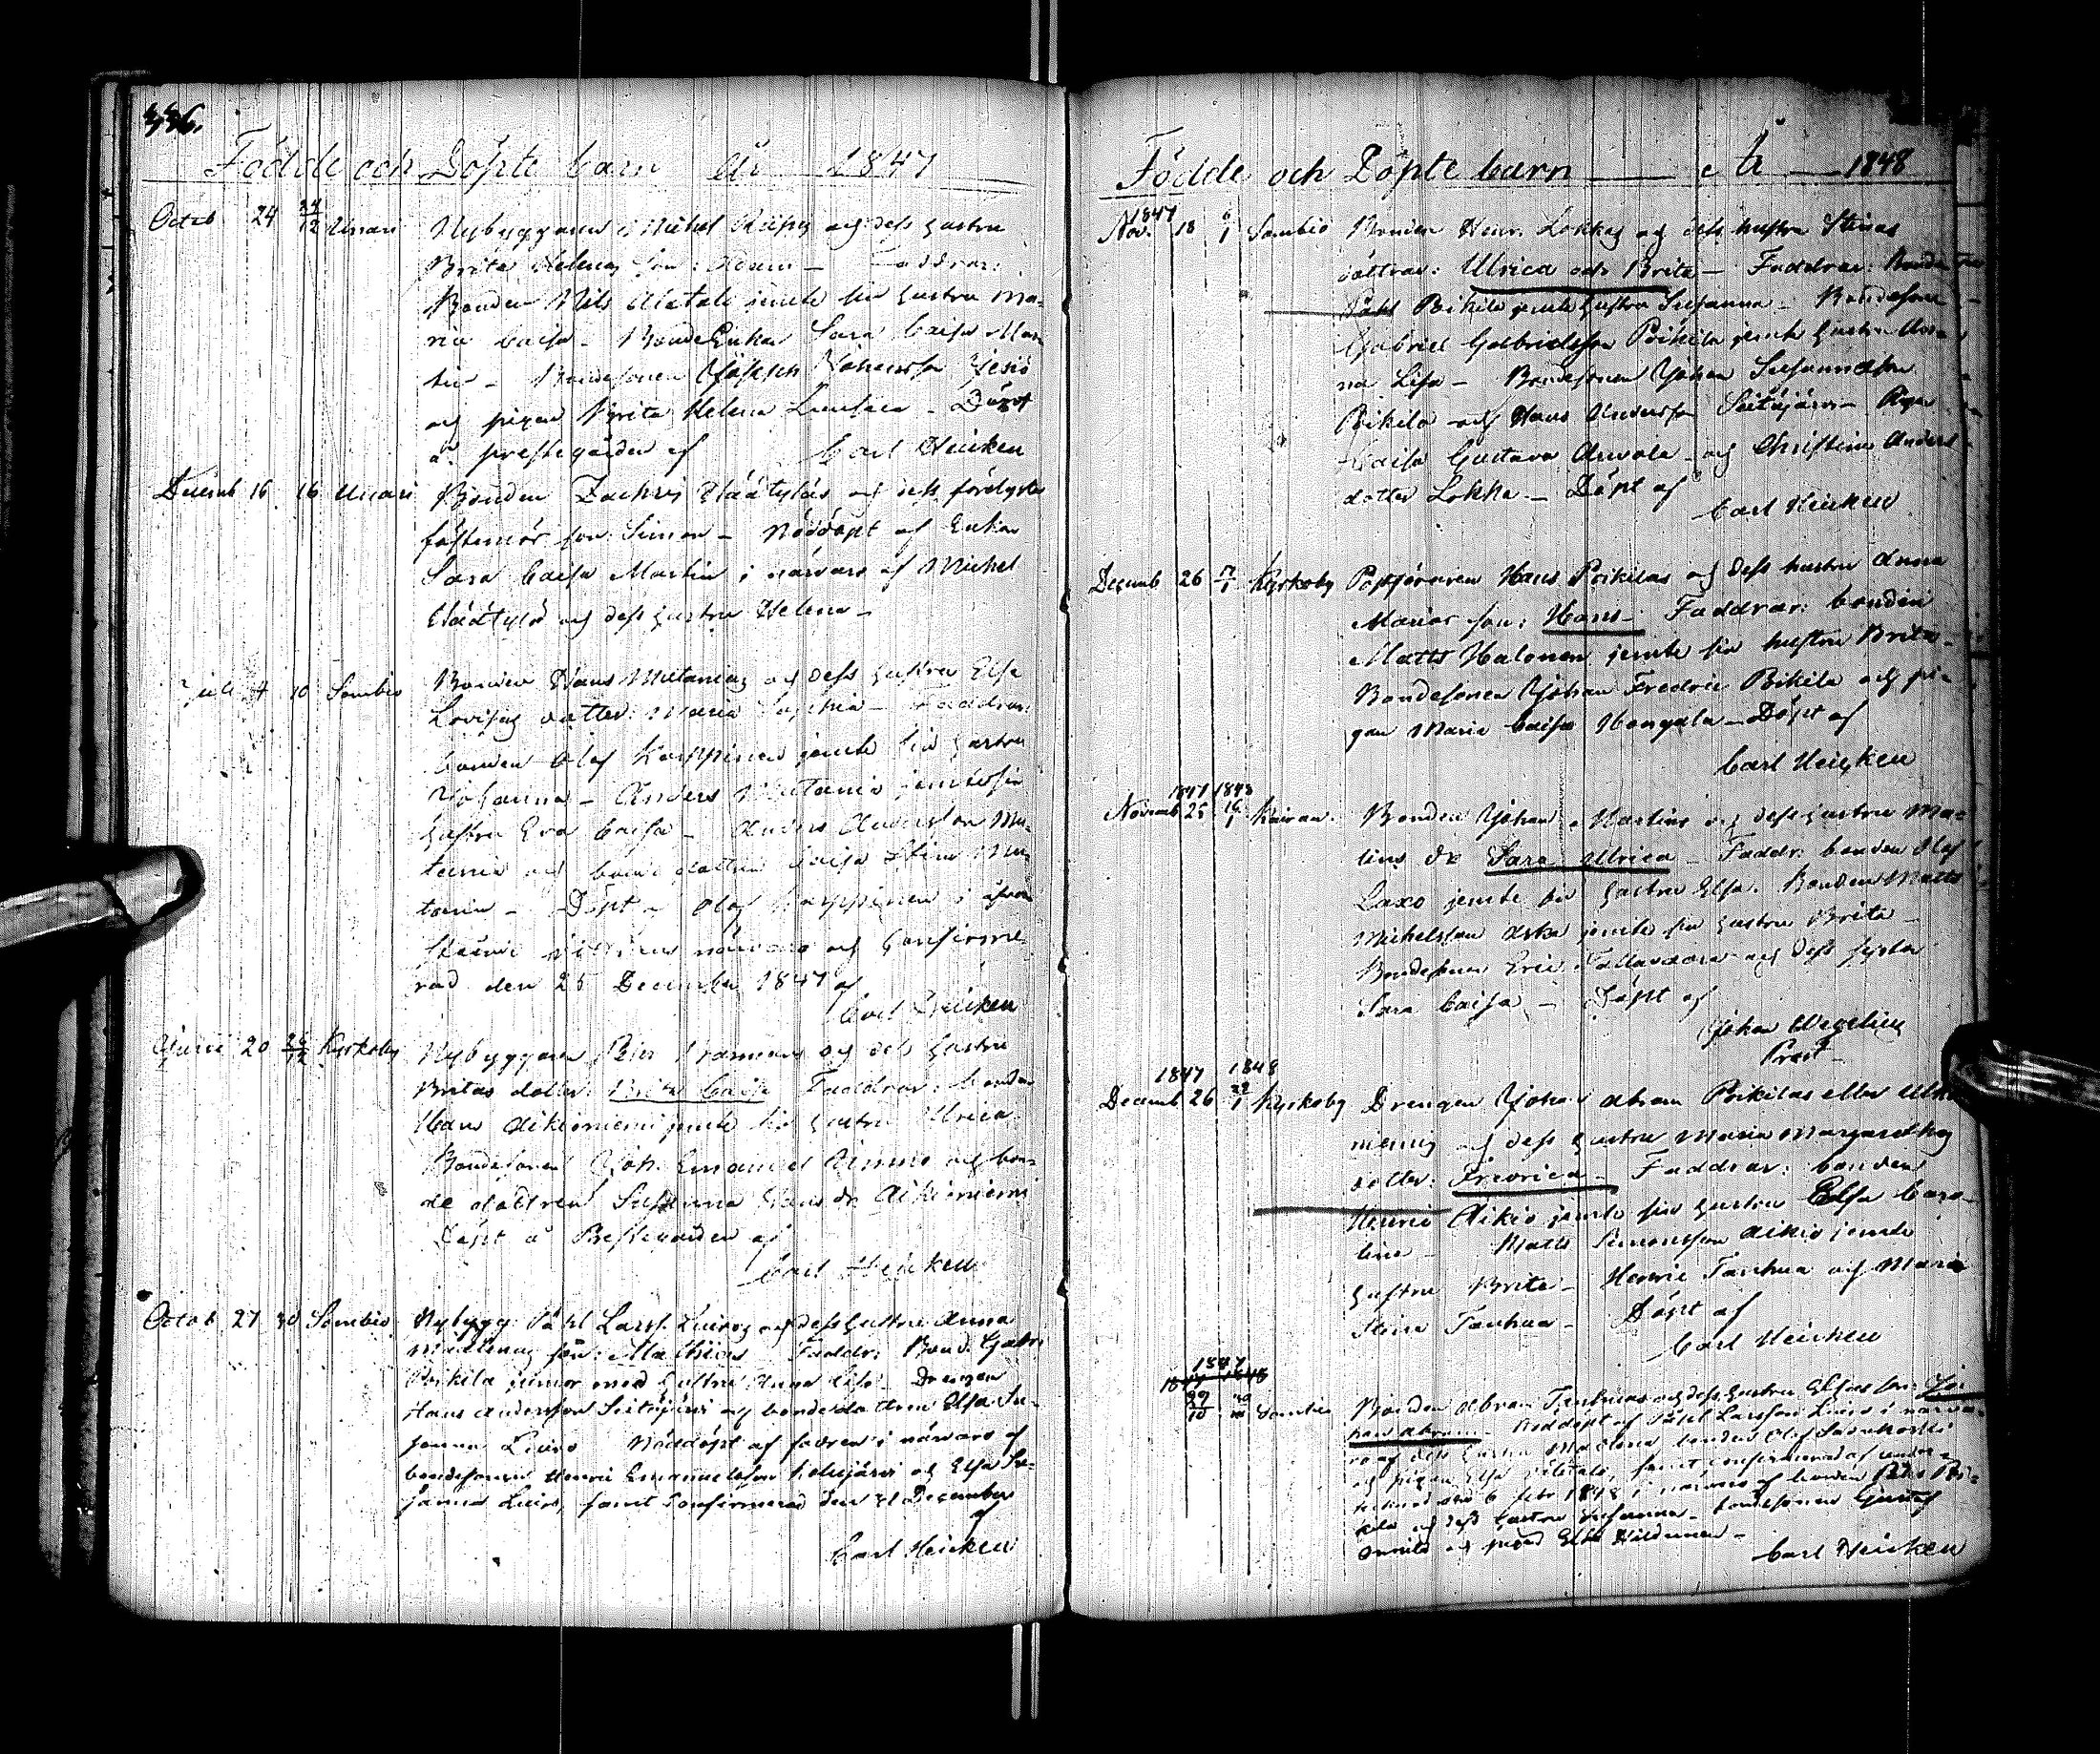 336.
Födde och Döpte barn År 1847
Octob 24 24/12 Unari Nybyggaren Michel och dess hustru
Brita Helenas son: Adam — Faddrar:
Bonden Nils Alatalo jemte sin hustru Ma-
ria Caisa — Bonde Enkan Sara Caisa Mar-
tin — Bondesonen Joseph Johansson
och pigan Brita Helena — Döpt
å prestegården af Carl Heicken
Decemb 16 16 Unari Bonden Zachris och dess förolyste
fästemös son: Simon — Nöddöpt af Enkan
Sara Caisa Martin i närvaro af Michel
och dess hustru Helena —
4 10 Sombio Bonden Hans Mutenias och dess hustru Elsa
Lovisas dotter: Maria Sophia — Faddrar:
bonden Olof Karppinen jemte sin hustru
Johanna — Anders Mutenia jemte sin
hustru Eva Caisa — Anders Andersson Mu-
tenia och bonde dottren Caisa Stina Mu-
tenia — Döpt af Olof Karppinen i ofvan
vittnens närvaro och Confirme-
rad den 25 December 1847 af
Carl Heicken
20 26/12 Kyrkoby Nybyggaren Petter och dess hustru
Britas dotter: Brita Caisa Faddrar: bonden
Hans Aikioniemi jemte sin hustru Ulrica
Bondesonen Joh. Emanuel och bon-
de dottren Susanna Hansdr Aikioniemi
Döpt å Prestegården af
Carl Heicken
Octob 27 30 Sombio Nybygg. Påhl Larss. Luiros och dess hustru Anna
Madlenas son: Mathias Faddr: Bond. Gabr:
Poikela junior med hustru Anna Lisa — Drengen
Hans Andersson Seitajärvi och bondedottren Elsa Su-
sanna Luiro Nöddöpt af fadren i närvaro af
bondesonen Henric Emanuelsson Kelujärvi och Elsa Su-
sanna Luiro, samt Confirmerad den 31 December
af
Carl Heicken
Födde och Döpte barn — År — 1848
1847
Nov. 18 6/1 Sombio Bonden Henr. Lokkas och dess hustru Stinas
döttrar: Ulrica och Brita — Faddrar: Bonde
Påhl Poikela jemte hustru Susanna — Bondesonen
Gabriel Gabrielsson Poikela jemte hustru An-
na Lisa — Bondesonen Johan
Poikela och Hans Andersson Seitajärvi — Pigan
Caisa Gustava Arvola och Christina Anders
dotter Lokka — Döpt af
Carl Heicken
Decemb 26 7/1 Kyrkoby Postföraren Hans Poikelas och dess hustru Anna
Marias son: Hans — Faddrar: bonden
Matts Halonen jemte sin hustru Brita —
Bondesonen Johan Fredric Poikela och pi-
gan Maria Caisa — Döpt af
Carl Heicken
1847 1848
Novemb 25 16/1 Kairan. Bonden Johan Martins och dess hustru Ma-
lins dr Sara Ulrica — Faddr: bonden Olof
Laxo jemte sin hustru Elsa. Bonden Matts
Michelsson Aska jemte sin hustru Brita —
Bondesonen Eric Tallavaara och dess syster
Sara Caisa — Döpt af
Johan Wegelius
Prost —
1847 1848
Decemb 26 29/1 Kyrkoby Drengen Johan Abram Poikelas eller
niemis och dess hustru Maria Margaretha
dotter: Fredrica — Faddrar: bonden
Henric Aikio jemte sin hustru Elsa Caro-
lina — Matts Simonsson Aikio jemte
hustru Brita — Henric Tanhua och Maria
Stina Tanhua — Döpt af
Carl Heicken
1847
1847 1848
29/10 Sombio Bonden Abram Tanhuas och dess hustru Elsas son: Jo-
han Abram — Nöddöpt af Påhl Larsson Luiro i närva-
ro af dess hustru Madlena bonden Olof
och pigan Elsa samt confirmerad af under-
tecknad den 6 Febr 1848 i närvaro af bonden Påhl Poi-
kela och dess hustru Susanna — bondesonen Gustaf
och pigan Elsa —
Carl Heicken